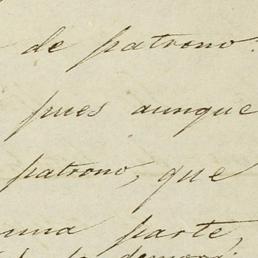 de patrono.
pues aunque
patrono, que
una parte,